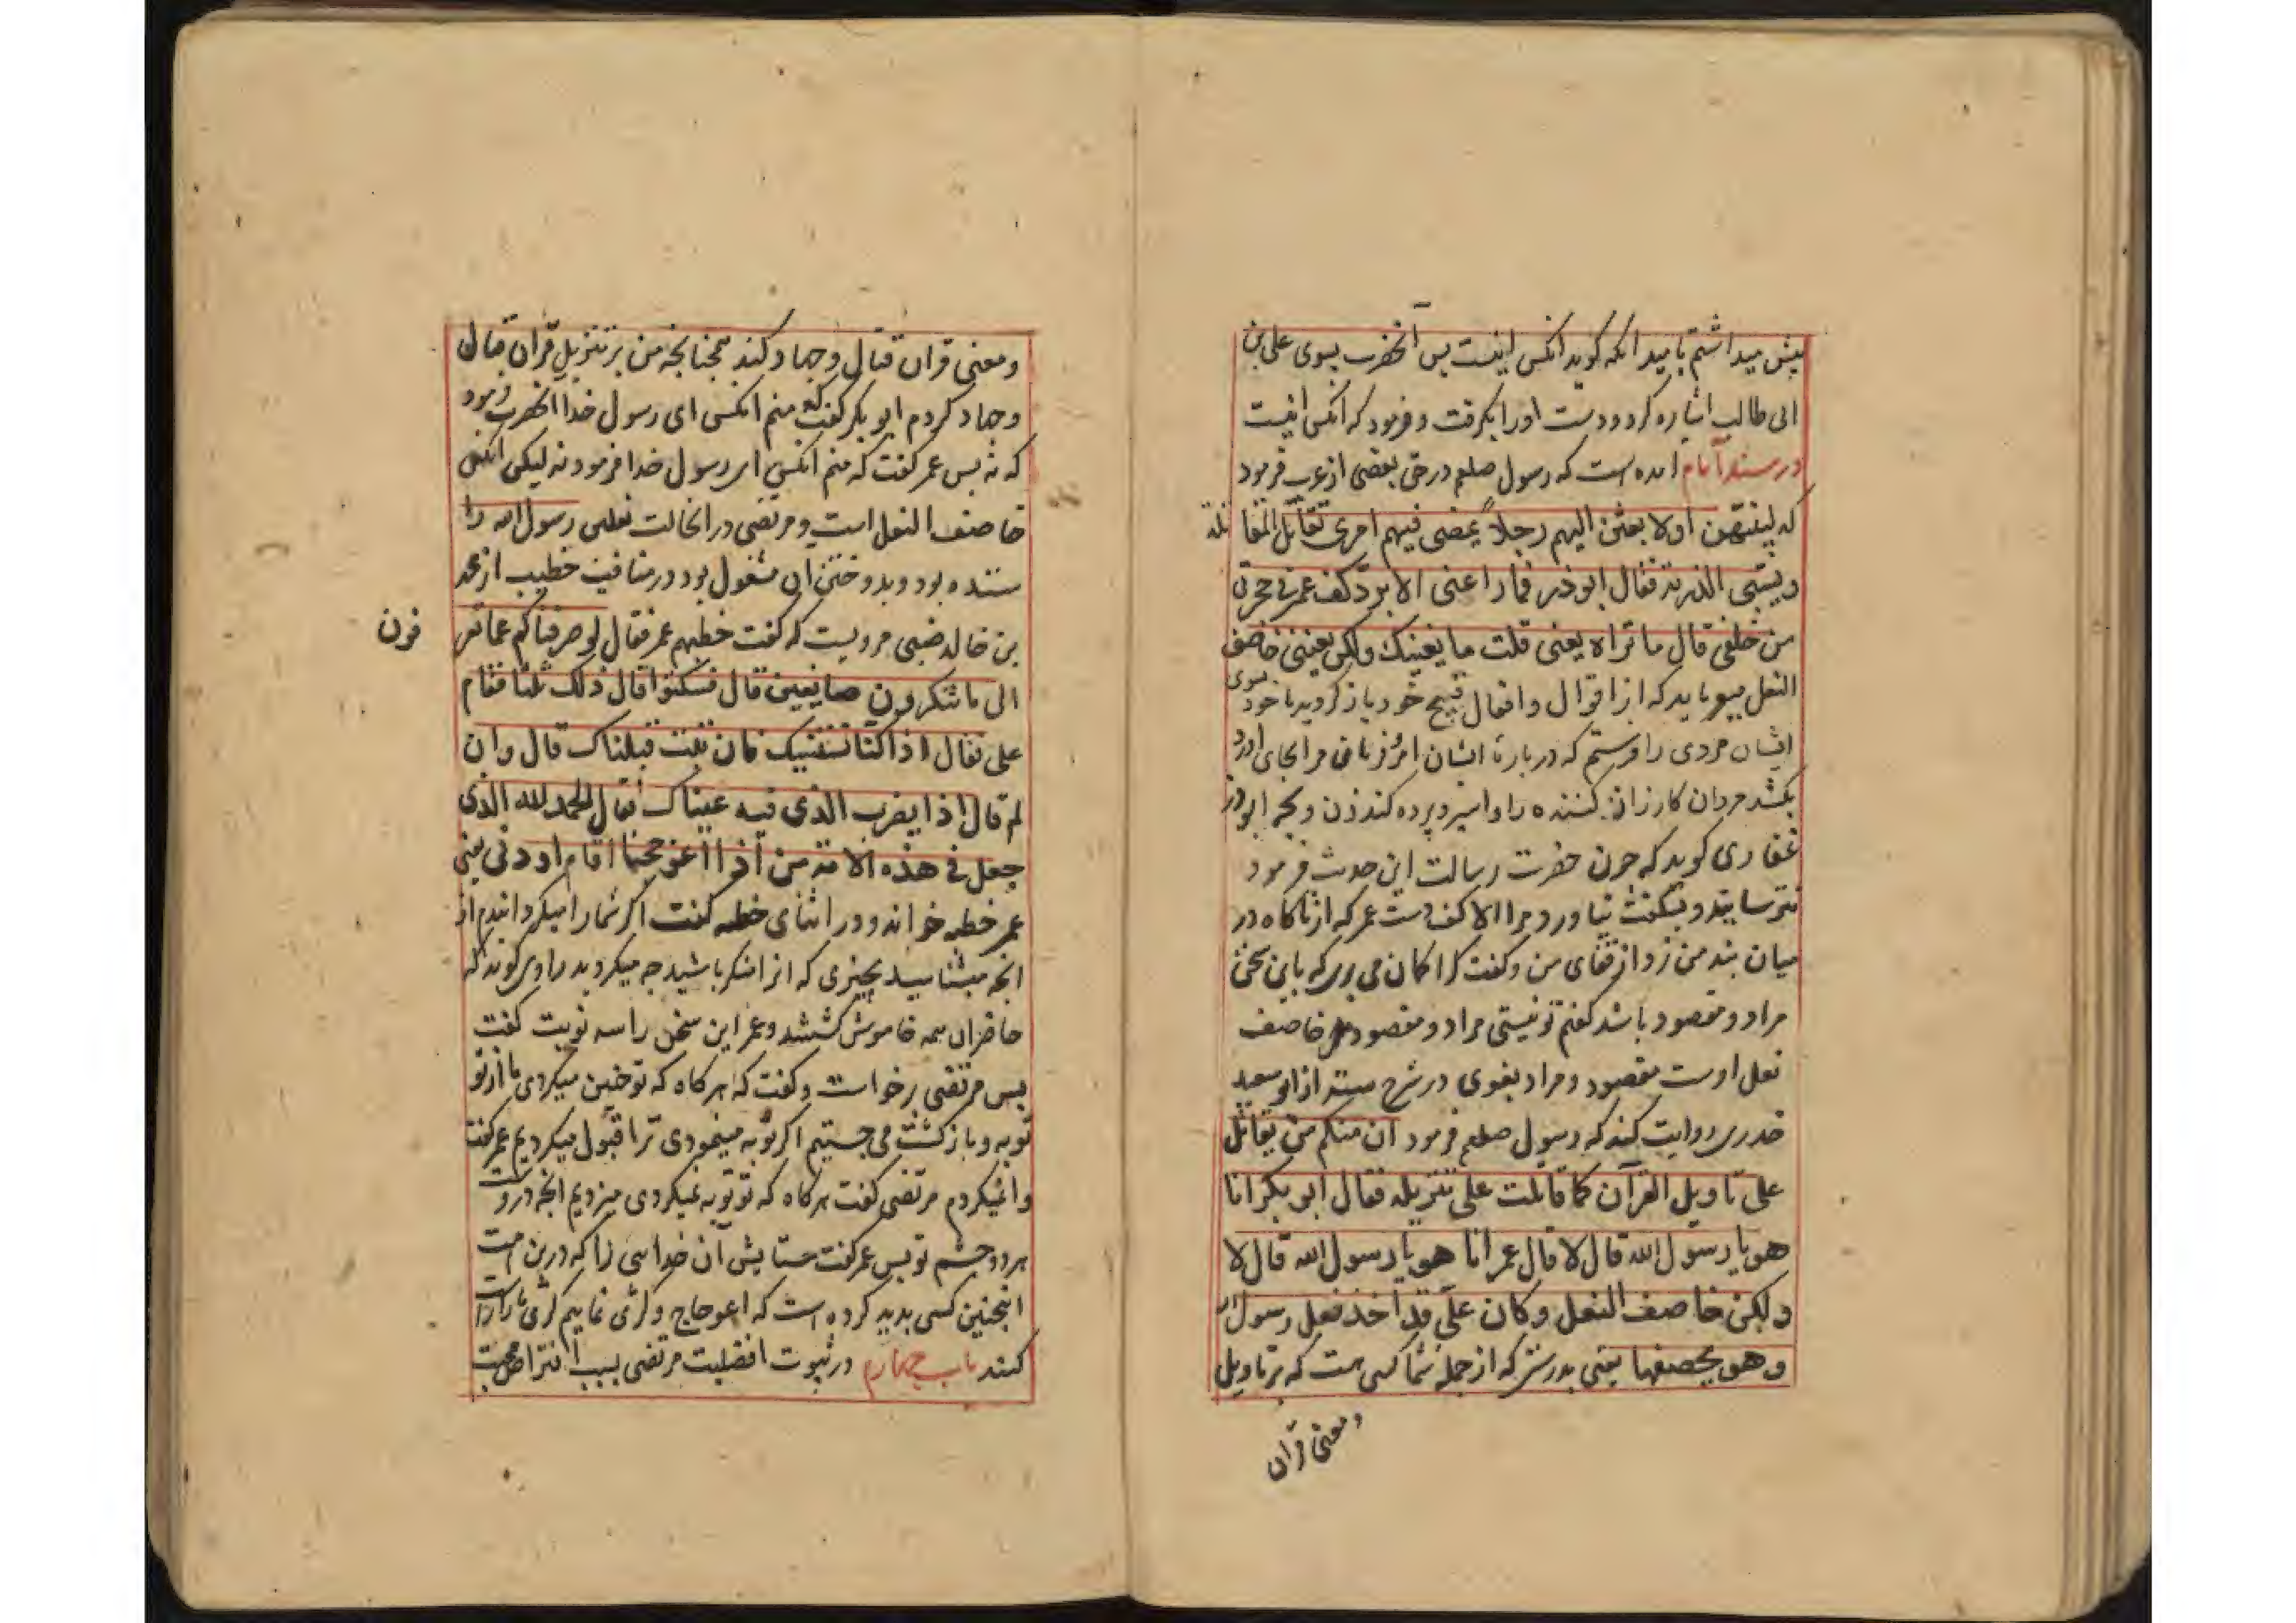 پیش میداشتم بامید انکه کوید انکس اینست پس آنحضرت بسوی علی بن
ابی طالب اشاره کرد و دست او را بکرفت و فرمود که انکس اینست
در مسند امام امده است که رسول صلعم در حق بعضی از عرب فرمود
که لینتهن اولا بعثن الیهم رجلاً یمضی فیهم امری تقاتل المقاتلة
و یسبی الذریة فقال ابو ذر فما راعنی الا برد کف عمر فی حجزتی
من خلفی قال ما تراه یعنی قلت ما یعنیک ولکن یعنی خاصف
النعل میفرماید که از اقوال و افعال قبیح خود باز کروید یا خود بسوی
ایشان مردی را فرستم که درباره ایشان امر و فرمان مرا بجای اورد
بکشد مردان کارزار کننده را و اسیر و برده کند زن و بچه ابوذر
غفاری کوید که چون حضرت رسالت این حدیث فرمود
نترسانید و بشکفت نیاورد مرا الا کف دست عمر که از ناکاه در
میان بند من زد از قفای من و کفت کرا کمان می بری که باین سخن
مراد و مقصود باشد کفتم تو نیستی مراد و مقصود خاصف
نعل اوست مقصود و مراد بغوی در شرح مسند از ابو سعید
خدری روایت کند که رسول صلعم فرمود ان منکم من یقاتل
علی تاویل القرآن کما قاتلت علی تنزیله فقال ابو بکر انا
هو یا رسول الله قال لا قال عمر انا هو یا رسول الله قال لا
ولکن خاصف النعل وکان علی قد اخذ نعل رسول الله
وهو یخصفها یعنی بدرستی که از جمله شما کسی هست که بر تاویل
و معنی قران
و معنی قران قتال و جهاد کند همچنانچه من بر تنزیل قران قتال
و جهاد کردم ابو بکر کفت که منم انکس ای رسول خدا انحضرت فرمود
که نه پس عمر کفت که منم انکس ای رسول خدا فرمود نه لیکن انکس
خاصف النعل است و مرتضی در انحالت نعلین رسول الله را
ستده بود و بدوختن ان مشغول بود در مناقب خطیب از محمد
بن خالد ضبی مرویست که کفت خطبهم عمر فقال لو صرفناکم عما تعرفون
الی ما تنکرون صانعین قال فسکتوا قال ذلک ثلثا فقام
علی فقال اذا کنا نستتیبک فان تبت قبلناک قال وان
لم قال اذا یضرب الذی فیه عیناک فقال الحمد لله الذی
جعل فی هذه الامة من اذا اعوججنا اقام اودنا یعنی
عمر خطبه خواند و در اثنای خطبه کفت اکر شما را میکردانیدم از
انچه میشناسید بچیزی که از ان منکر باشید چه میکردید راوی کوید که
حاضران همه خاموش کشتند و عمر این سخن را سه نوبت کفت
پس مرتضی برخواست و کفت که هر کاه که تو چنین میکردی ما از تو
توبه و بازکشت می جستیم اکر توبه مینمودی ترا قبول میکردیم عمر کفت
و اکر نمیکردم مرتضی کفت هر کاه که تو توبه نمیکردی میزدیم انچه دروست
هر دو چشم تو پس عمر کفت ستایش آن خدایی را که درین امت
اینچنین کسی پدید کرده است که اعوجاج و کژی نماییم کژی ما را راست
کند باب چهارم در ثبوت افضلیت مرتضی بسبب افتراض محبت